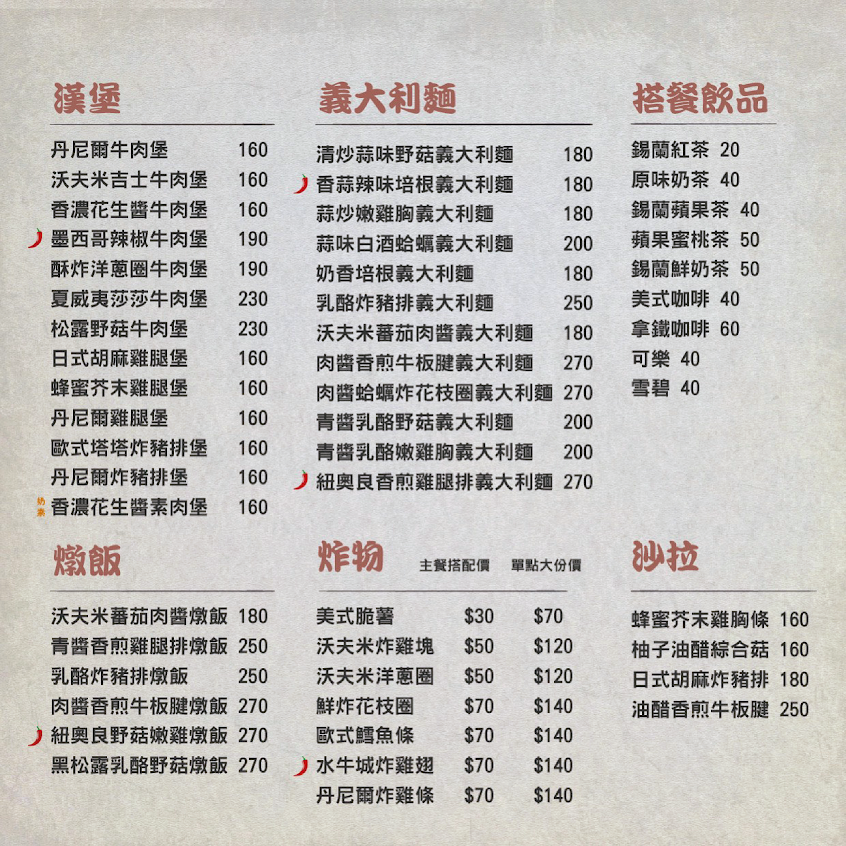 漢堡
丹尼爾牛肉堡 160
沃夫米吉士牛肉堡 160
香濃花生醬牛肉堡 160
墨西哥辣椒牛肉堡 190
酥炸洋蔥圈牛肉堡 190
夏威夷莎莎牛肉堡 230
松露野菇牛肉堡 230
日式胡麻雞腿堡 160
蜂蜜芥末雞腿堡 160
丹尼爾雞腿堡 160
歐式塔塔炸豬排堡 160
丹尼爾炸豬排堡 160
奶素 香濃花生醬素肉堡 160
義大利麵
清炒蒜味野菇義大利麵 180
香蒜辣味培根義大利麵 180
蒜炒嫩雞胸義大利麵 180
蒜味白酒蛤蠣義大利麵 200
奶香培根義大利麵 180
乳酪炸豬排義大利麵 250
沃夫米蕃茄肉醬義大利麵 180
肉醬香煎牛板腱義大利麵 270
肉醬蛤蠣炸花枝圈義大利麵 270
青醬乳酪野菇義大利麵 200
青醬乳酪嫩雞胸義大利麵 200
紐奧良香煎雞腿排義大利麵 270
搭餐飲品
錫蘭紅茶 20
原味奶茶 40
錫蘭蘋果茶 40
蘋果蜜桃茶 50
錫蘭鮮奶茶 50
美式咖啡 40
拿鐵咖啡 60
可樂 40
雪碧 40
燉飯
沃夫米蕃茄肉醬燉飯 180
青醬香煎雞腿排燉飯 250
乳酪炸豬排燉飯 250
肉醬香煎牛板腱燉飯 270
紐奧良野菇嫩雞燉飯 270
黑松露乳酪野菇燉飯 270
炸物 主餐搭配價 單點大份價
美式脆薯 $30 $70
沃夫米炸雞塊 $50 $120
沃夫米洋蔥圈 $50 $120
鮮炸花枝圈 $70 $140
歐式鱈魚條 $70 $140
水牛城炸雞翅 $70 $140
丹尼爾炸雞條 $70 $140
沙拉
蜂蜜芥末雞胸條 160
柚子油醋綜合菇 160
日式胡麻炸豬排 180
油醋香煎牛板腱 250